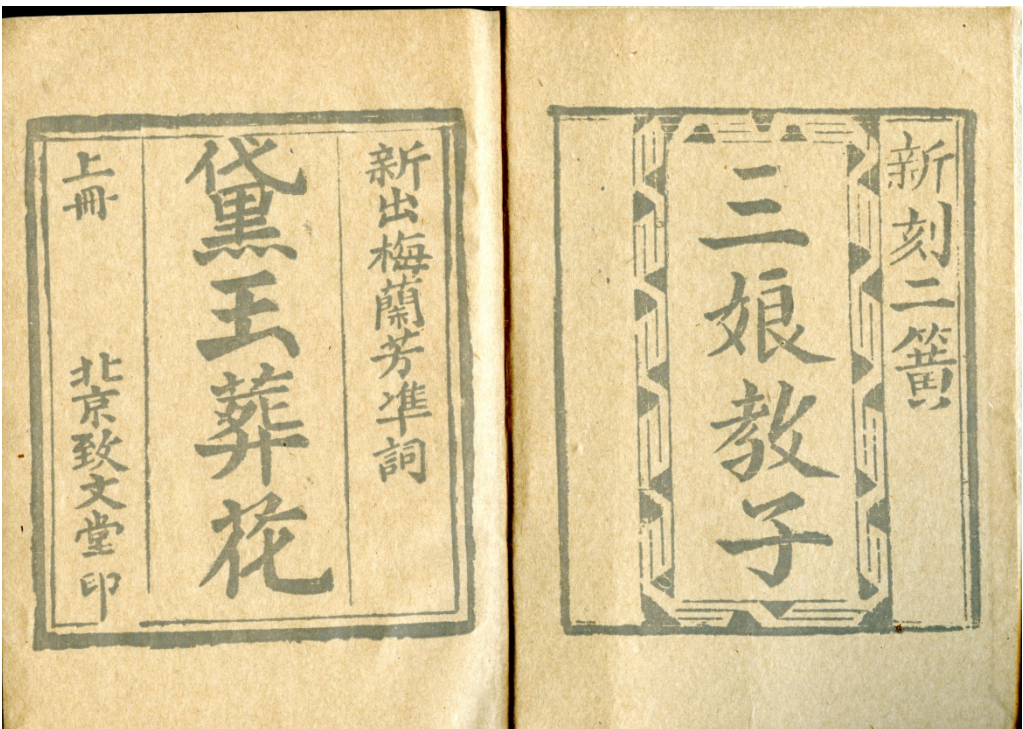 新刻二簧
三娘教子
新出梅蘭芳凖詞
黛玉葬花
上冊
北京致文堂印